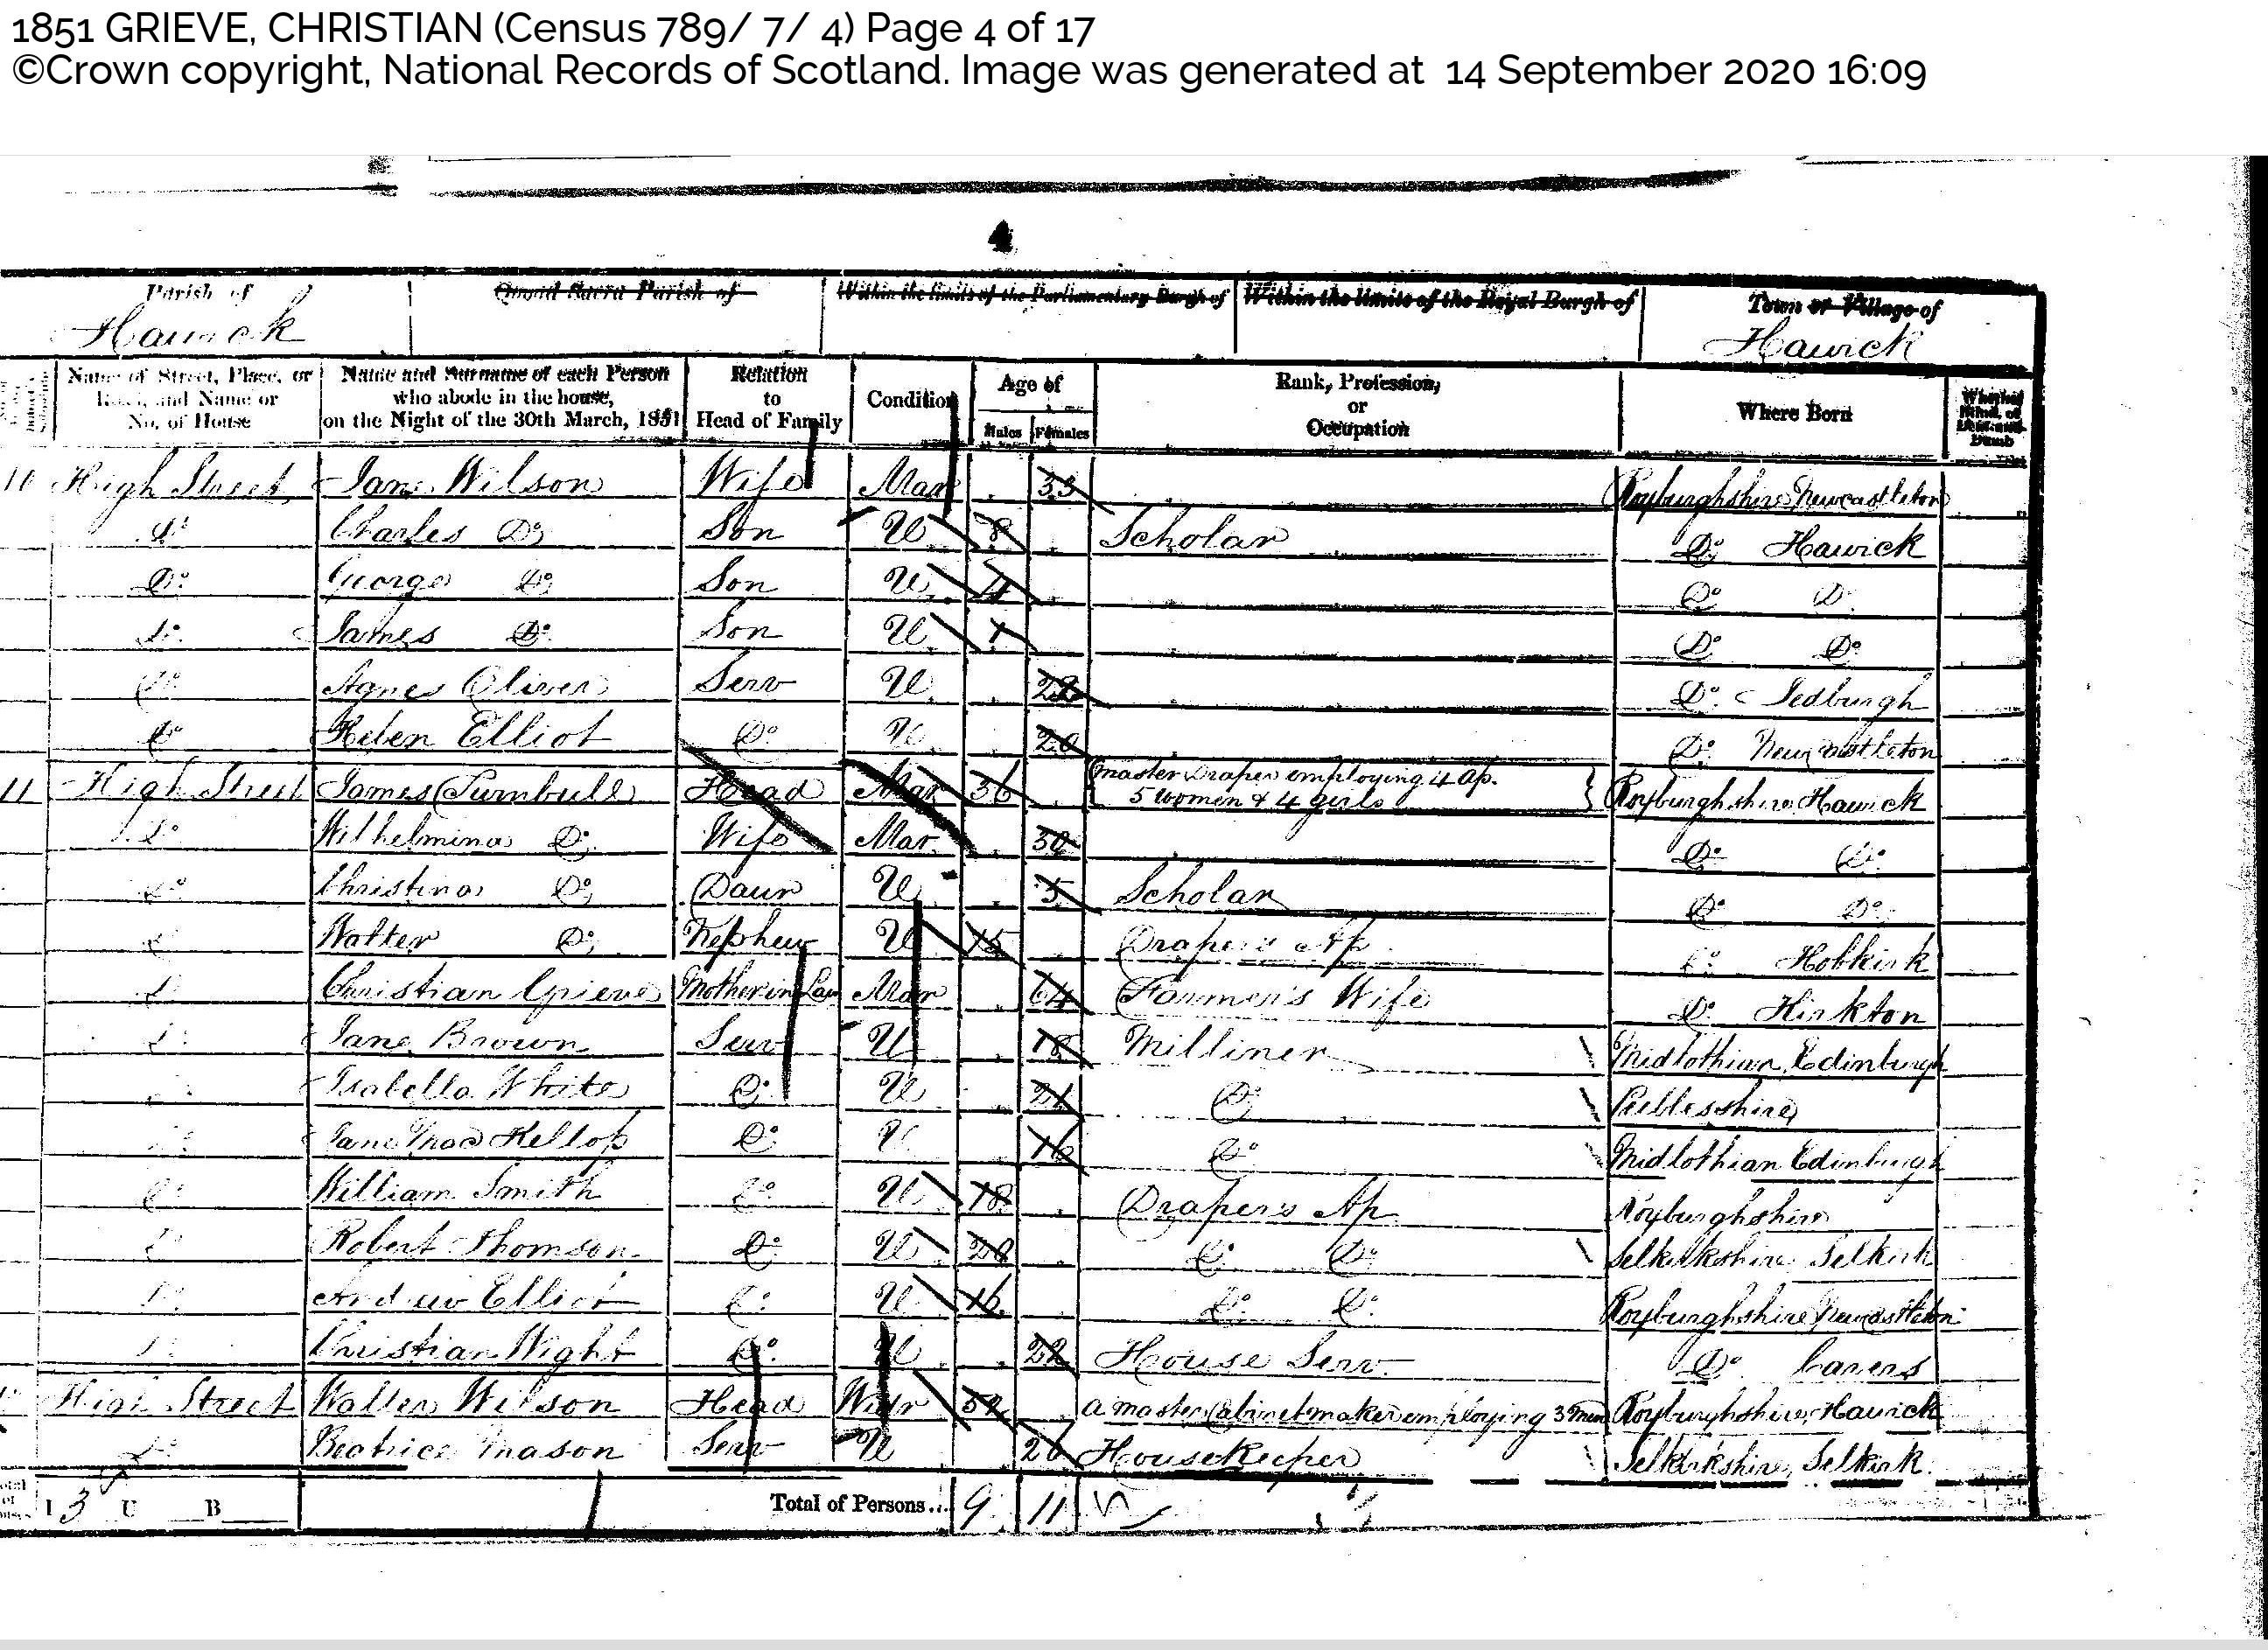 1851 GRIEVE, CHRISTIAN (Census 789/ 7/ 4) Page 4 of 17
©Crown copyright, National Records of Scotland. Image was generated at 14 September 2020 16:09
4
Parish of Quoad Sacra Parish of Within the limits of the Parliamentary Burgh of Within the limits of the Royal Burgh of Town or Village of
Hawick Hawick
Name of Street, Place, or Road, and Name or No. of House
Name and Surname of each Person who abode in the house, on the Night of the 30th March, 1851
Relation to Head of Family
Condition
Age of
Males Females
Rank, Profession, or Occupation
Where Born
Whether Blind, or Deaf and Dumb
10 High Street Jane Wilson Wife Mar 33 Roxburghshire Newcastleton
Do Charles Do Son U 8 Scholar Do Hawick
Do George Do Son U 4 Do Do
Do James Do Son U 1 Do Do
Do Agnes Oliver Serv U 22 Do Jedburgh
Do Heben Elliot Do U 20 Do Newcastleton
11 High Street James Turnbull Head Mar 36 Master Draper employing 4 Ap. 5 Women & 4 girls Roxburghshire Hawick
Do Wilhelmina Do Wife Mar 30 Do Do
Do Christina Do Daur U 5 Scholar Do Do
Do Walter Do Nephew U 15 Draper's Ap Do Hobkirk
Do Christian Grieve Mother in Law Mar 64 Farmer's Wife Do Kirkton
Do Jane Brown Serv U 18 Milliner Midlothian Edinburgh
Do Isabella White Do U 21 Do Peeblesshire
Do Jane Mac Kellop Do U 16 Do Midlothian Edinburgh
Do William Smith Do U 18 Draper's Ap Roxburghshire
Do Robert Thomson Do U 20 Do Do Selkirkshire Selkirk
Do Andrew Elliot Do U 16 Do Do Roxburghshire Newcastleton
Do Christian Wight Do U 22 House Serv Do Cavers
High Street Walter Wilson Head Widr 52 a master Cabinetmaker employing 3 men Roxburghshire Hawick
Do Beatrice Mason Serv U 26 Housekeeper Selkirkshire, Selkirk
I 3 U B Total of Persons... 9 11